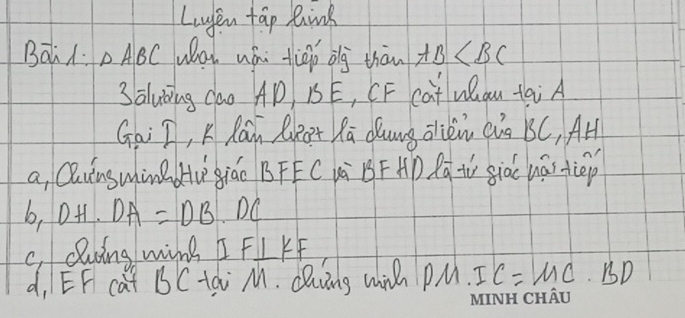 Luyện tập hình
Bài 1: Δ ABC nhọn nội tiếp đtg thân AB < BC
3 đường cao AD, BE, CF cắt nhau tại A
Gọi I, K lần lượt là dung điểm của BC, AH
a, Chứng minh tứ giác BFEC và BFHD là tứ giác nội tiếp
b, DH . DA = DB . DC
c, chứng minh IF ⊥ KF
d, EF cắt BC tại M. chứng minh DM . IC = MC . BD
MINH CHÂU